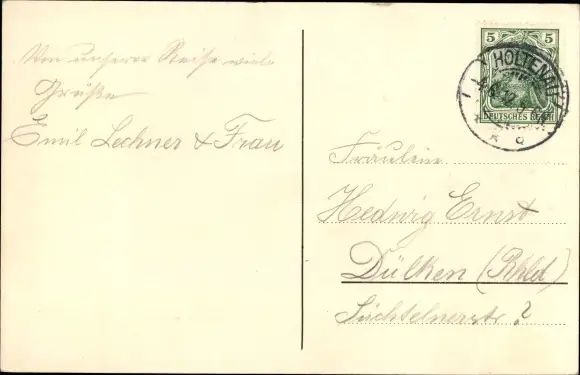 Von unserer Reise viele
Grüße
Emil Lechner & Frau
5 5
DEUTSCHES REICH
HOLTENAU
12
Fräulein
Hedwig Ernst
Dülken (Rhld)
Süchtelnerstr. ?